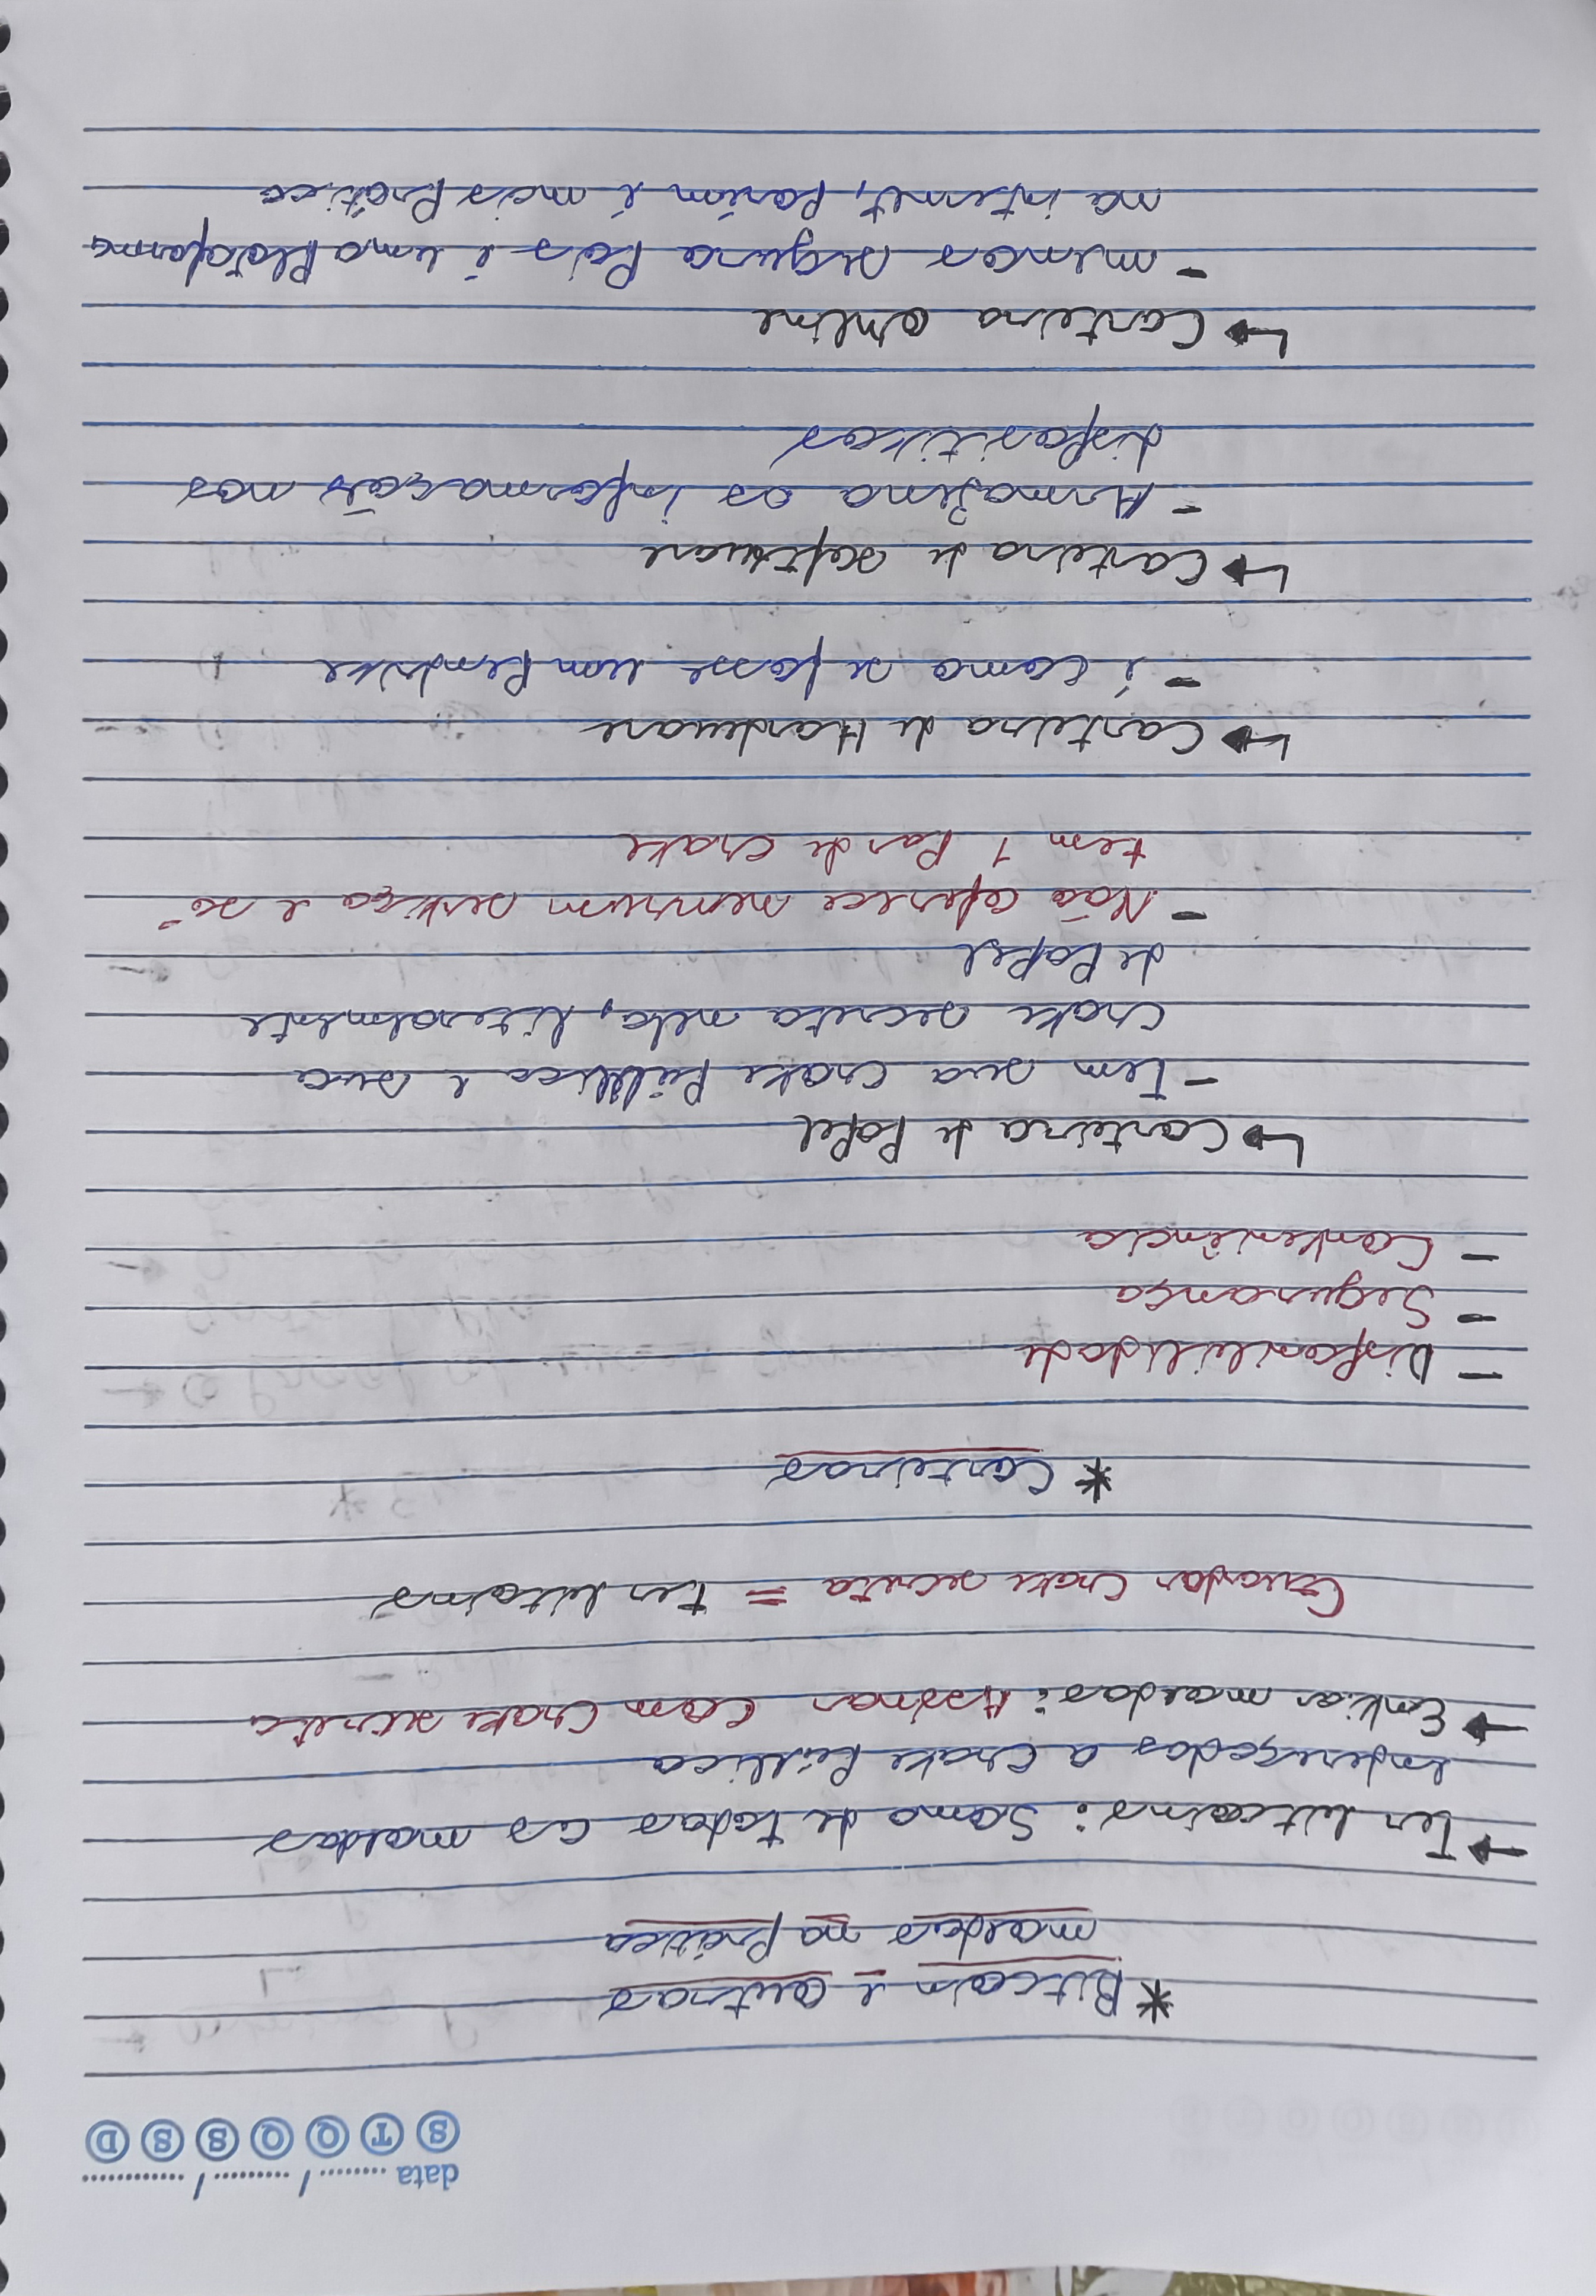 data ........ / ......... / ............
S T Q Q S S D
* Bitcoin e outras
moedas na Prática
→ Ter bitcoins: Soma de todas as moedas
endereçadas a chave Pública
→ Enviar moedas: Assinar com chave secreta
Guardar chave secreta = ter bitcoins
* Carteiras
- Disponibilidade
- Segurança
- Conveniência
↳ Carteira de Papel
- Tem sua chave Pública e sua
chave secreta nela, literalmente
de Papel
- Não oferece nenhum serviço e só
tem 1 Par de chave
↳ Carteira de Hardware
- é como se fosse um Pendrive
↳ Carteira de software
- Armazena as informações nos
dispositivos
↳ Carteira online
- menos segura Pois é uma Plataforma
na internet, Porém é mais Prática